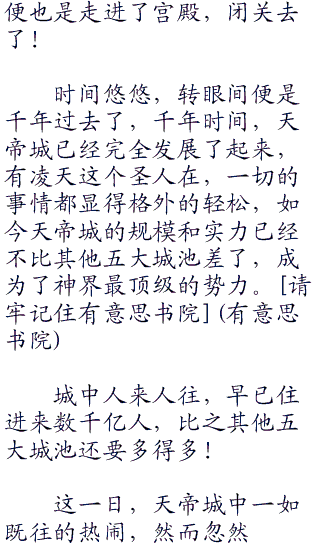 便也是走进了宫殿，闭关去
了！
时间悠悠，转眼间便是
千年过去了，千年时间，天
帝城已经完全发展了起来，
有凌天这个圣人在，一切的
事情都显得格外的轻松，如
今天帝城的规模和实力已经
不比其他五大城池差了，成
为了神界最顶级的势力。[请
牢记住有意思书院](有意思
书院)
城中人来人往，早已住
进来数千亿人，比之其他五
大城池还要多得多！
这一日，天帝城中一如
既往的热闹，然而忽然